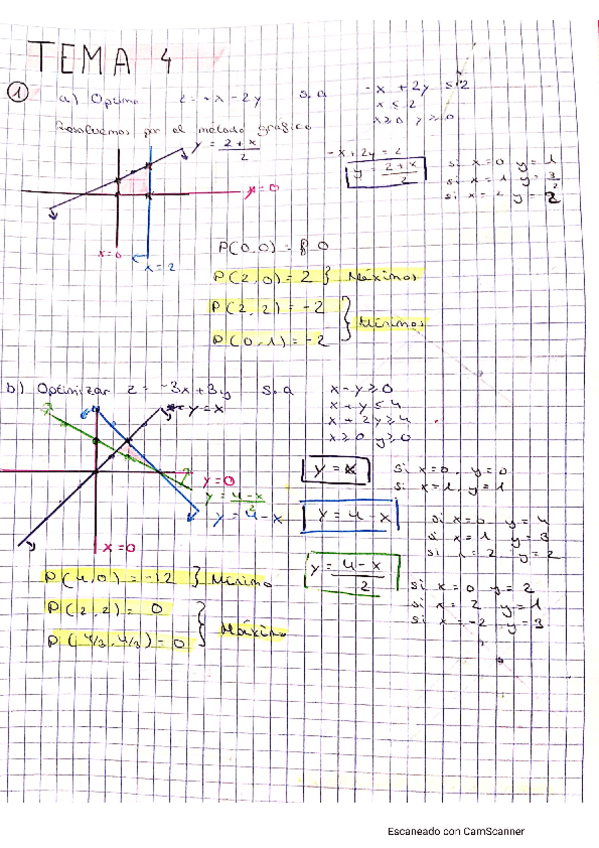 TEMA 4
① a) Optimo z = x - 2y s.a -x + 2y ≤ 2
x ≤ 2
x ≥ 0 y ≥ 0
Resolvemos por el método gráfico
y = 2+x/2
-x + 2y = 2
y = 2+x/2
si x=0 y=1
si x=1 y=3/2
si x=2 y=2
y=0
x=0
x=2
P(0,0) = 0
P(2,0) = 2 } Máximos
P(2,2) = -2
P(0,1) = -2
} Mínimos
b) Optimizar z = -3x+3y s.a x-y ≥ 0
x+y ≤ 4
x+2y ≥ 4
x ≥ 0 y ≥ 0
y=x
y=0
y = 4-x/2
y = 4-x
x=0
y = x
si x=0, y=0
si x=1, y=1
y = 4-x
si x=0 y=4
si x=1 y=3
si x=2 y=2
y = 4-x/2
si x=0 y=2
si x=2 y=1
si x=-2 y=3
P(4,0) = -12 } Mínimo
P(2,2) = 0
P(4/3, 4/3) = 0
} Máximo
Escaneado con CamScanner